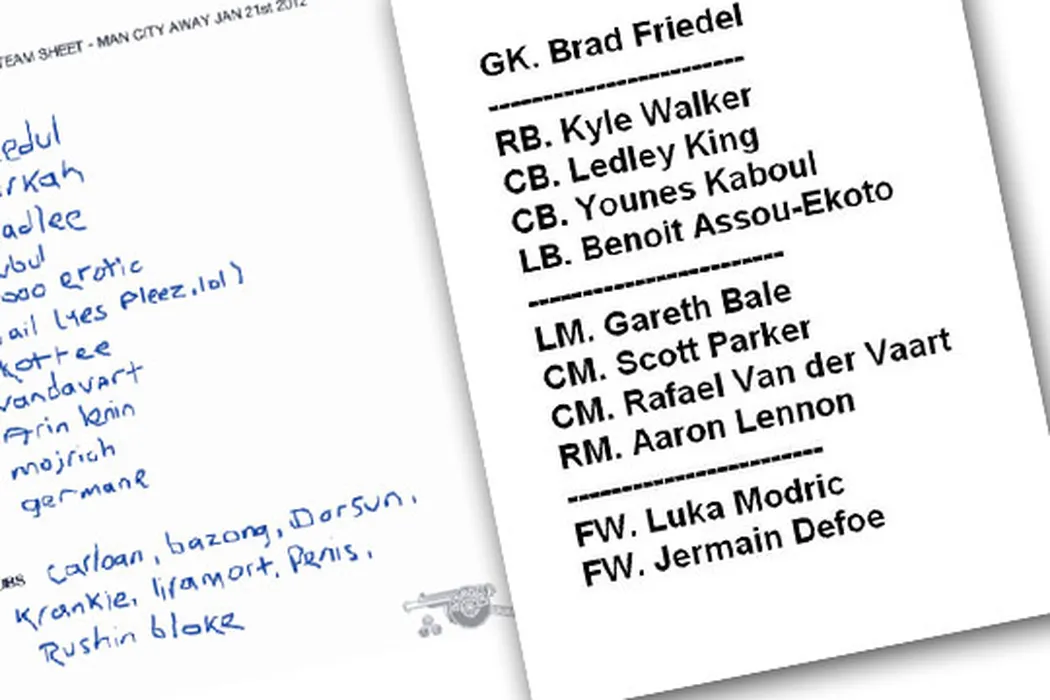 TEAM SHEET - MAN CITY AWAY JAN 21st 2012
edul
rkah
adlee
bul
ooo erotic
ail (yes pleez.lol)
kottee
vandavart
Arin lenin
mojrich
germane
carloan, bazong, Dorsun,
Krankie, liramort, Penis,
Rushin bloke
GK. Brad Friedel
------------------------
RB. Kyle Walker
CB. Ledley King
CB. Younes Kaboul
LB. Benoit Assou-Ekoto
------------------------
LM. Gareth Bale
CM. Scott Parker
CM. Rafael Van der Vaart
RM. Aaron Lennon
------------------------
FW. Luka Modric
FW. Jermain Defoe